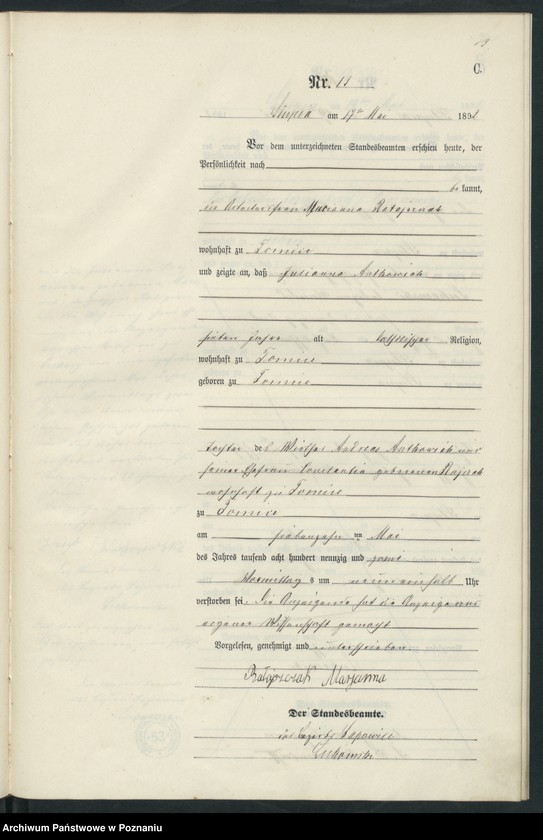 19
C.
Nr. 19
am 17ten Mai 1892
Vor dem unterzeichneten Standesbeamten erschien heute, der
Persönlichkeit nach
be kannt,
die Arbeiterfrau Maryanna Ratajczak
wohnhaft zu Tomice
und zeigte an, daß Julianna Antkowiak
sieben Jahre alt katholischer Religion,
wohnhaft zu Tomice
geboren zu Tomice
Tochter des Wirthes Andreas Antkowiak und
seiner Ehefrau Constantia geborenen
wohnhaft zu Tomice
zu Tomice
am siebenzehn ten Mai
des Jahres tausend acht hundert neunzig und zwei
Vormittag s um neun einhalb Uhr
verstorben sei. Die Anzeigende hat die Anzeige aus
eigener Wissenschaft gemacht
Vorgelesen, genehmigt und unterschrieben
Ratajczak Marjanna
Der Standesbeamte.
des Bezirks
Archiwum Państwowe w Poznaniu